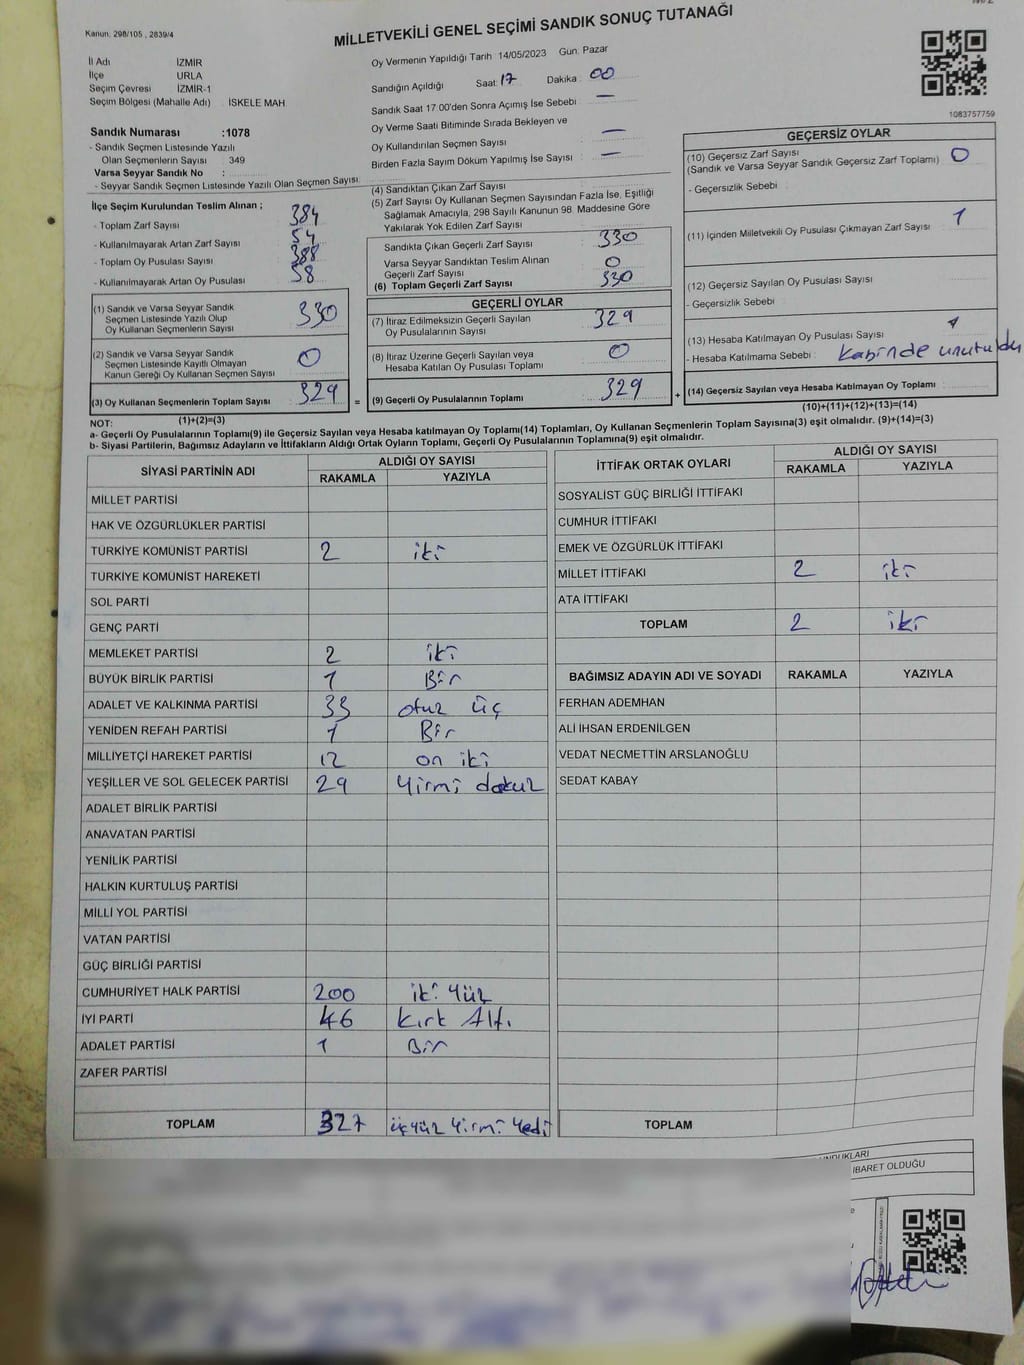 Kanun. 298/105 , 2839/4
MİLLETVEKİLİ GENEL SEÇİMİ SANDIK SONUÇ TUTANAĞI
İl Adı İZMİR
İlçe URLA
Seçim Çevresi İZMİR-1
Seçim Bölgesi (Mahalle Adı) . İSKELE MAH
Sandık Numarası :1078
- Sandık Seçmen Listesinde Yazılı
Olan Seçmenlerin Sayısı : 349
Varsa Seyyar Sandık No :
- Seyyar Sandık Seçmen Listesinde Yazılı Olan Seçmen Sayısı:
Oy Vermenin Yapıldığı Tarih 14/05/2023 Gün. Pazar
Sandığın Açıldığı Saat: 17 Dakika : 00
Sandık Saat 17.00'den Sonra Açımış İse Sebebi : —
Oy Verme Saati Bitiminde Sırada Bekleyen ve
Oy Kullandırılan Seçmen Sayısı : —
Birden Fazla Sayım Döküm Yapılmış İse Sayısı : —
1083757759
İlçe Seçim Kurulundan Teslim Alınan ;
- Toplam Zarf Sayısı : 384
- Kullanılmayarak Artan Zarf Sayısı : 54
- Toplam Oy Pusulası Sayısı : 388
- Kullanılmayarak Artan Oy Pusulası : 58
(1) Sandık ve Varsa Seyyar Sandık
Seçmen Listesinde Yazılı Olup
Oy Kullanan Seçmenlerin Sayısı : 330
(2) Sandık ve Varsa Seyyar Sandık
Seçmen Listesinde Kayıtlı Olmayan
Kanun Gereği Oy Kullanan Seçmen Sayısı : 0
(3) Oy Kullanan Seçmenlerin Toplam Sayısı : 329
(1)+(2)=(3)
(4) Sandıktan Çıkan Zarf Sayısı :
(5) Zarf Sayısı Oy Kullanan Seçmen Sayısından Fazla İse, Eşitliği
Sağlamak Amacıyla, 298 Sayılı Kanunun 98. Maddesine Göre
Yakılarak Yok Edilen Zarf Sayısı :
Sandıkta Çıkan Geçerli Zarf Sayısı : 330
Varsa Seyyar Sandıktan Teslim Alınan
Geçerli Zarf Sayısı : 0
(6) Toplam Geçerli Zarf Sayısı : 330
GEÇERLİ OYLAR
(7) İtiraz Edilmeksizin Geçerli Sayılan
Oy Pusulalarının Sayısı : 329
(8) İtiraz Üzerine Geçerli Sayılan veya
Hesaba Katılan Oy Pusulası Toplamı : 0
= (9) Geçerli Oy Pusulalarının Toplamı : 329 +
GEÇERSİZ OYLAR
(10) Geçersiz Zarf Sayısı
(Sandık ve Varsa Seyyar Sandık Geçersiz Zarf Toplamı) : 0
- Geçersizlik Sebebi :
(11) İçinden Milletvekili Oy Pusulası Çıkmayan Zarf Sayısı : 1
(12) Geçersiz Sayılan Oy Pusulası Sayısı :
- Geçersizlik Sebebi :
(13) Hesaba Katılmayan Oy Pusulası Sayısı :
- Hesaba Katılmama Sebebi : kabinde unutuldu
(14) Geçersiz Sayılan veya Hesaba Katılmayan Oy Toplamı :
(10)+(11)+(12)+(13)=(14)
NOT:
a- Geçerli Oy Pusulalarının Toplamı(9) ile Geçersiz Sayılan veya Hesaba katılmayan Oy Toplamı(14) Toplamları, Oy Kullanan Seçmenlerin Toplam Sayısına(3) eşit olmalıdır. (9)+(14)=(3)
b- Siyasi Partilerin, Bağımsız Adayların ve İttifakların Aldığı Ortak Oyların Toplamı, Geçerli Oy Pusulalarının Toplamına(9) eşit olmalıdır.
SİYASİ PARTİNİN ADI ALDIĞI OY SAYISI
RAKAMLA YAZIYLA
MİLLET PARTİSİ
HAK VE ÖZGÜRLÜKLER PARTİSİ
TÜRKİYE KOMÜNİST PARTİSİ 2 iki
TÜRKİYE KOMÜNİST HAREKETİ
SOL PARTİ
GENÇ PARTİ
MEMLEKET PARTİSİ 2 iki
BÜYÜK BİRLİK PARTİSİ 1 Bir
ADALET VE KALKINMA PARTİSİ 33 otuz üç
YENİDEN REFAH PARTİSİ 1 Bir
MİLLİYETÇİ HAREKET PARTİSİ 12 on iki
YEŞİLLER VE SOL GELECEK PARTİSİ 29 Yirmi dokuz
ADALET BİRLİK PARTİSİ
ANAVATAN PARTİSİ
YENİLİK PARTİSİ
HALKIN KURTULUŞ PARTİSİ
MİLLİ YOL PARTİSİ
VATAN PARTİSİ
GÜÇ BİRLİĞİ PARTİSİ
CUMHURİYET HALK PARTİSİ 200 iki Yüz
İYİ PARTİ 46 Kırk Altı
ADALET PARTİSİ 1 Bir
ZAFER PARTİSİ
TOPLAM 327 üçyüz Yirmi Yedi
İTTİFAK ORTAK OYLARI ALDIĞI OY SAYISI
RAKAMLA YAZIYLA
SOSYALİST GÜÇ BİRLİĞİ İTTİFAKI
CUMHUR İTTİFAKI
EMEK VE ÖZGÜRLÜK İTTİFAKI
MİLLET İTTİFAKI 2 iki
ATA İTTİFAKI
TOPLAM 2 iki
BAĞIMSIZ ADAYIN ADI VE SOYADI RAKAMLA YAZIYLA
FERHAN ADEMHAN
ALİ İHSAN ERDENİLGEN
VEDAT NECMETTİN ARSLANOĞLU
SEDAT KABAY
TOPLAM
İBARET OLDUĞU